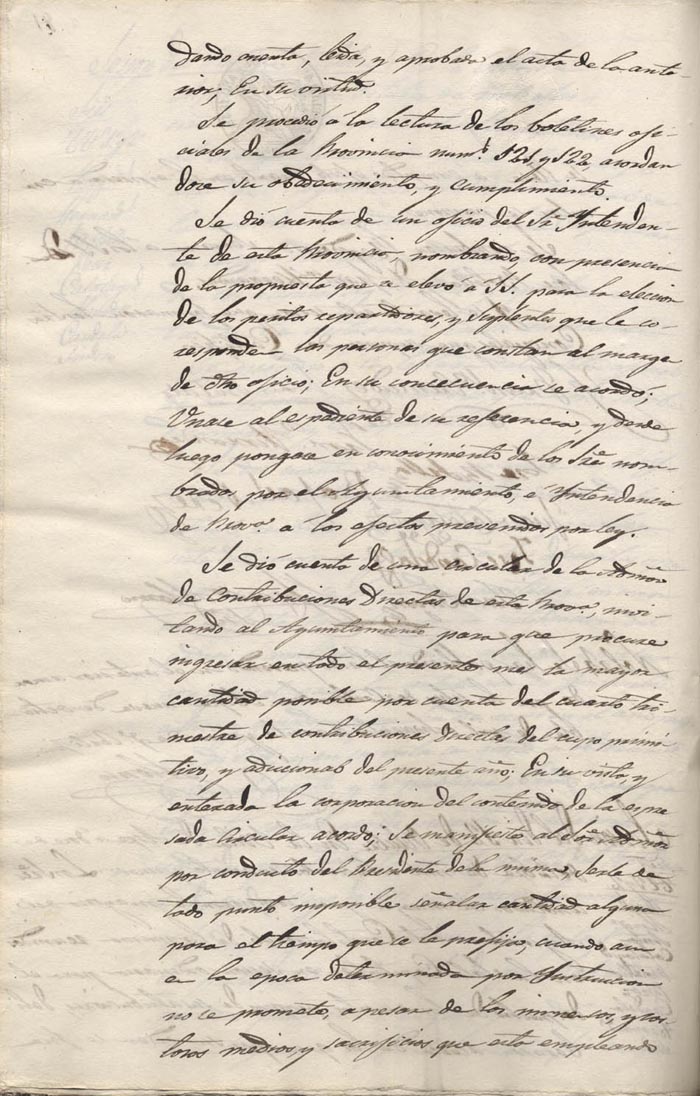 dando cuenta, leida, y aprobada el acta de la ante-
rior; En su virtud.
Se procedió a la lectura de los boletines ofi-
ciales de la Provincia num.s 121, y 122 acordan
dose su obedecimiento, y cumplimiento.
Se dió cuenta de un oficio del Sr. Intenden-
te de esta Provincia, nombrando con presencia
de la propuesta que se elevó a SS. para la eleccion
de los peritos repartidores, y suplentes que le co-
responde las personas que constan al marge
de dho oficio; En su consecuencia se acordó;
Unase al espediente de su referencia, y desde
luego pongase en conocimiento de los Sres nom-
brados por el Ayuntamiento, e Intendencia
de Prova. a los efectos prevenidos por ley.
Se dió cuenta de una circular de la Admon
de Contribuciones Directas de esta Prova., invi-
tando al Ayuntamiento para que procure
ingresar en todo el presente mes la mayor
cantidad posible por cuenta del cuarto tri-
mestre de contribuciones directas del cupo primi
tivo, y adicional del presente año; En su vista, y
enterada la corporacion del contenido de la espre
sada circular acordó; Se manifieste al Sor. Admor
por conducto del Presidente de la misma, serle de
todo punto imposible señalar cantidad alguna
para el tiempo que se le prefijo, cuando aun
en la epoca determinada por Instruccion
no se promete, a pesar de los inmensos, y cos
tosos medios, y sacrificios que esta empleando